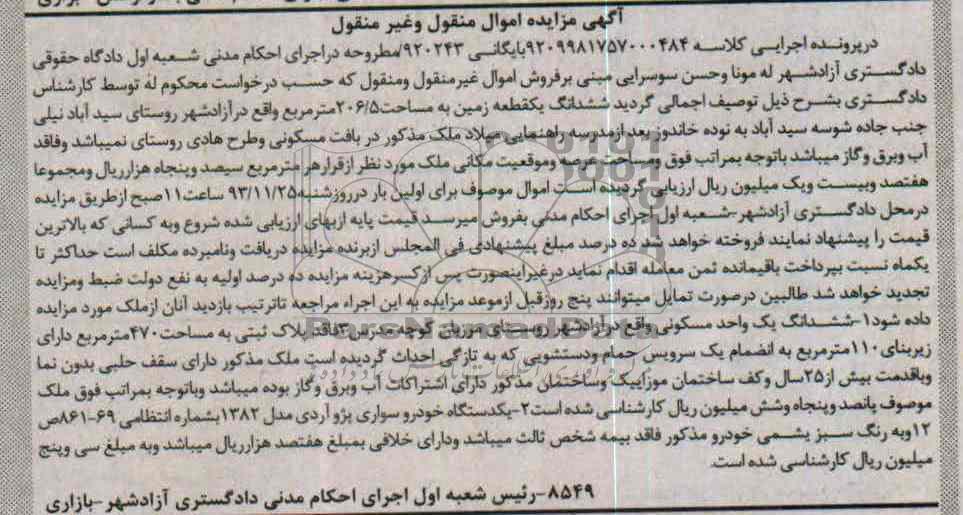 آگهی مزایده اموال منقول وغیر منقول
درپرونده اجرایی کلاسه ۹۲۰۹۹۸۱۷۵۷۰۰۰۴۸۴بایگانی ۹۲۰۲۴۳/مطروحه دراجرای احکام مدنی شعبه اول دادگاه حقوقی
دادگستری آزادشهر له مونا وحسن سوسرایی مبنی برفروش اموال غیرمنقول ومنقول که حسب درخواست محکوم له توسط کارشناس
دادگستری بشرح ذیل توصیف اجمالی گردید ششدانگ یکقطعه زمین به مساحت۲۰۶/۵مترمربع واقع درآزادشهر روستای سید آباد نیلی
جنب جاده شوسه سید آباد به نوده خاندوز بعد ازمدرسه راهنمایی میلاد ملک مذکور در بافت مسکونی وطرح هادی روستای نمیباشد وفاقد
آب وبرق وگاز میباشد باتوجه بمراتب فوق ومساحت عرصه وموقعیت مکانی ملک مورد نظر ازقرارهر مترمربع سیصد وپنجاه هزارریال ومجموعا
هفتصد وبیست ویک میلیون ریال ارزیابی گردیده است اموال موصوف برای اولین بار درروزشنبه۹۳/۱۱/۲۵ ساعت۱۱صبح ازطریق مزایده
درمحل دادگستری آزادشهر-شعبه اول اجرای احکام مدنی بفروش میرسد قیمت پایه ازبهای ارزیابی شده شروع وبه کسانی که بالاترین
قیمت را پیشنهاد نمایند فروخته خواهد شد ده درصد مبلغ پیشنهادی فی المجلس ازبرنده مزایده دریافت ونامبرده مکلف است حداکثر تا
یکماه نسبت بپرداخت باقیمانده ثمن معامله اقدام نماید درغیراینصورت پس ازکسرهزینه مزایده ده درصد اولیه به نفع دولت ضبط ومزایده
تجدید خواهد شد طالبین درصورت تمایل میتوانند پنج روزقبل ازموعد مزایده به این اجراء مراجعه تاترتیب بازدید آنان ازملک مورد مزایده
داده شود۱-ششدانگ یک واحد مسکونی واقع درآزادشهر روستای مرزبان کوچه مدرس۳فاقد پلاک ثبتی به مساحت۴۷۰مترمربع دارای
زیربنای۱۱۰مترمربع به انضمام یک سرویس حمام ودستشویی که به تازگی احداث گردیده است ملک مذکور دارای سقف حلبی بدون نما
وباقدمت بیش از۲۵سال وکف ساختمان موزاییک وساختمان مذکور دارای اشتراکات آب وبرق وگاز بوده میباشد وباتوجه بمراتب فوق ملک
موصوف پانصد وپنجاه وشش میلیون ریال کارشناسی شده است۲-یکدستگاه خودرو سواری پژو آردی مدل ۱۳۸۲بشماره انتظامی ۶۹-۸۶۱ص
۱۲وبه رنگ سبز یشمی خودرو مذکور فاقد بیمه شخص ثالث میباشد ودارای خلافی بمبلغ هفتصد هزارریال میباشد وبه مبلغ سی وپنج
میلیون ریال کارشناسی شده است.
۸۵۴۹-رئیس شعبه اول اجرای احکام مدنی دادگستری آزادشهر-بازاری